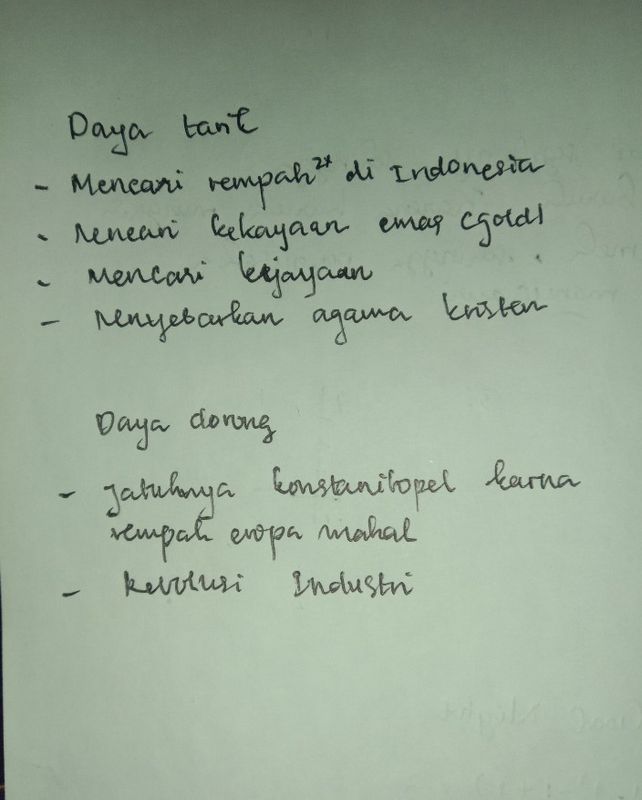 Daya tarik
- Mencari rempah2x di Indonesia
- Mencari kekayaan emas (gold)
- Mencari kejayaan
- Menyebarkan agama kristen
Daya dorong
- Jatuhnya konstanitopel karna
rempah eropa mahal
- Revolusi Industri